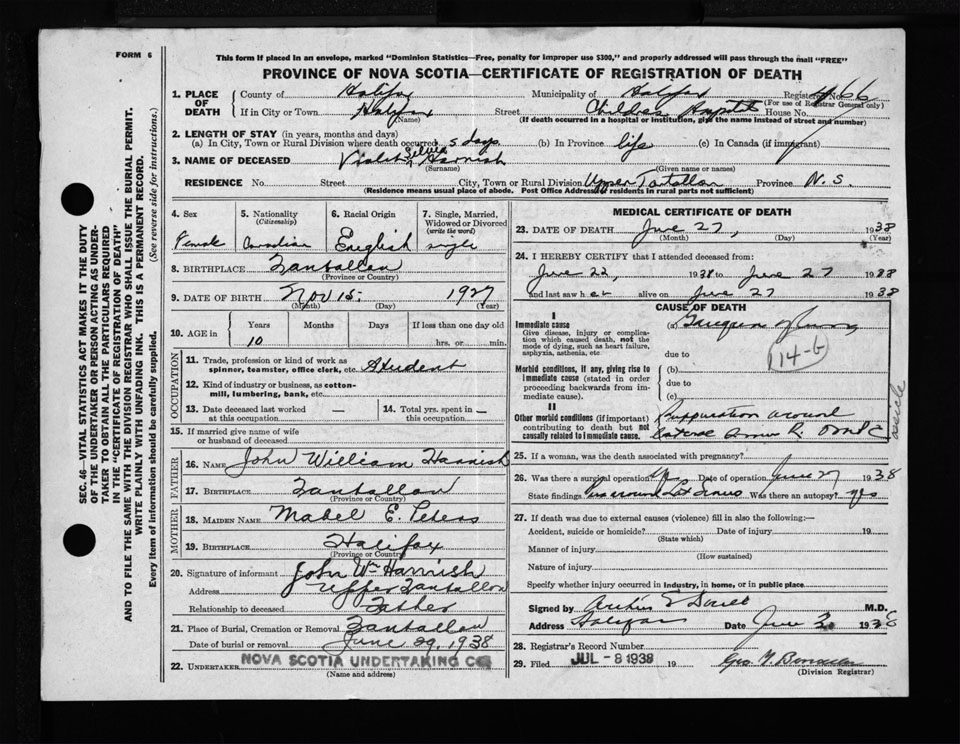 FORM 6
This form if placed in an envelope, marked "Dominion Statistics—Free, penalty for improper use $300," and properly addressed will pass through the mail "FREE"
PROVINCE OF NOVA SCOTIA—CERTIFICATE OF REGISTRATION OF DEATH
1. PLACE OF DEATH
County of Halifax Municipality of Halifax Registered No. 766
(For use of Registrar General only)
If in City or Town Halifax Street Childrens Hospital House No.
(Name) (If death occurred in a hospital or institution, give the name instead of street and number)
2. LENGTH OF STAY (in years, months and days)
(a) In City, Town or Rural Division where death occurred 5 days (b) In Province life (c) In Canada (if immigrant)
3. NAME OF DECEASED Violet Harnish
(Surname) (Given name or names)
RESIDENCE No. Street City, Town or Rural Division Upper Tantallon Province N. S.
(Residence means usual place of abode. Post Office Address of residents in rural parts not sufficient)
SEC. 46—VITAL STATISTICS ACT MAKES IT THE DUTY
OF THE UNDERTAKER OR PERSON ACTING AS UNDER-
TAKER TO OBTAIN ALL THE PARTICULARS REQUIRED
IN THE "CERTIFICATE OF REGISTRATION OF DEATH"
AND TO FILE THE SAME WITH THE DIVISION REGISTRAR WHO SHALL ISSUE THE BURIAL PERMIT.
WRITE PLAINLY WITH UNFADING INK. THIS IS A PERMANENT RECORD.
Every item of information should be carefully supplied. (See reverse side for instructions.)
4. Sex
Female
5. Nationality
(Citizenship)
Canadian
6. Racial Origin
English
7. Single, Married,
Widowed or Divorced
(write the word)
single
8. BIRTHPLACE Tantallon
(Province or Country)
9. DATE OF BIRTH Nov 15 1927
(Month) (Day) (Year)
10. AGE in Years Months Days If less than one day old
10 hrs. or min.
OCCUPATION
11. Trade, profession or kind of work as
spinner, teamster, office clerk, etc. Student
12. Kind of industry or business, as cotton-
mill, lumbering, bank, etc.
13. Date deceased last worked
at this occupation —
14. Total yrs. spent in
this occupation —
15. If married give name of wife
or husband of deceased
FATHER
16. NAME John William Harnish
17. BIRTHPLACE Tantallon
(Province or Country)
MOTHER
18. MAIDEN NAME Mabel E. Peters
19. BIRTHPLACE Halifax
(Province or Country)
20. Signature of informant John Wm Harnish
Address Upper Tantallon
Relationship to deceased Father
21. Place of Burial, Cremation or Removal Tantallon
Date of burial or removal June 29, 1938
22. UNDERTAKER NOVA SCOTIA UNDERTAKING CO
(Name and address)
MEDICAL CERTIFICATE OF DEATH
23. DATE OF DEATH June 27, 1938
(Month) (Day) (Year)
24. I HEREBY CERTIFY that I attended deceased from:
June 22, 1938 to June 27 1938
and last saw her alive on June 27 1938
CAUSE OF DEATH
I
Immediate cause
Give disease, injury or complica-
tion which caused death, not the
mode of dying, such as heart failure,
asphyxia, asthenia, etc
(a) Gangrene of lung
due to
114-b
Morbid conditions, if any, giving rise to
immediate cause (stated in order
proceeding backwards from im-
mediate cause).
(b)
due to
(c)
II
Other morbid conditions (if important)
contributing to death but not
causally related to immediate cause.
Suppuration around
25. If a woman, was the death associated with pregnancy?
26. Was there a surgical operation? Date of operation June 27 1938
State findings Was there an autopsy? yes
27. If death was due to external causes (violence) fill in also the following:—
Accident, suicide or homicide? Date of injury 19
(State which)
Manner of injury
(How sustained)
Nature of injury
Specify whether injury occurred in industry, in home, or in public place
Signed by M.D.
Address Halifax Date June 1938
28. Registrar's Record Number
29. Filed JUL - 8 1938 19
(Division Registrar)